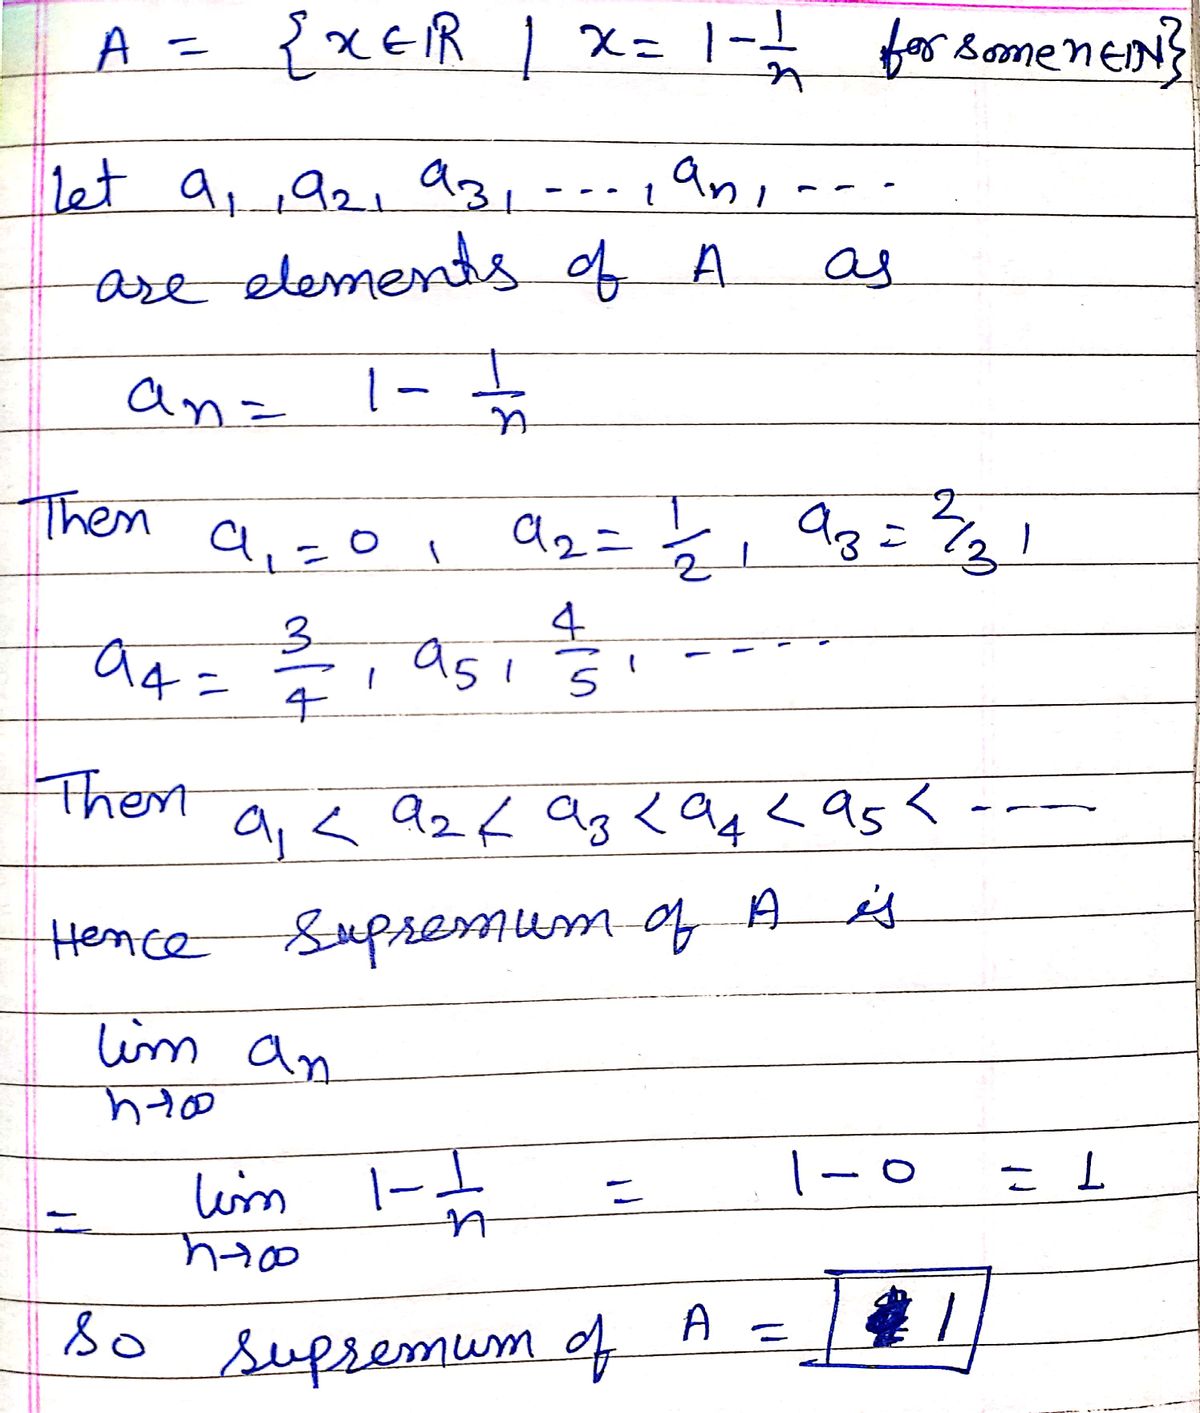 A = {x ∈ ℝ | x = 1 - 1/n for some n ∈ ℕ}
Let a₁, a₂, a₃, ---, aₙ, ---
are elements of A as
aₙ = 1 - 1/n
Then a₁ = 0, a₂ = 1/2, a₃ = 2/3,
a₄ = 3/4, a₅, 4/5, ----
Then a₁ < a₂ < a₃ < a₄ < a₅ < ----
Hence supremum of A is
lim aₙ
n→∞
= lim 1 - 1/n = 1 - 0 = 1
n→∞
So supremum of A = 1